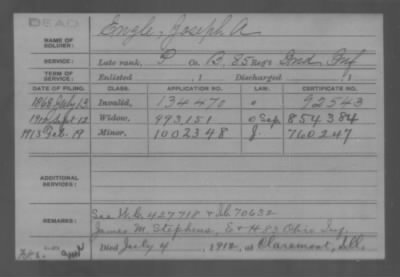 DEAD
NAME OF SOLDIER: Engle, Joseph A
SERVICE: Late rank, P Co. B, 85 Reg't Ind Inf
TERM OF SERVICE: Enlisted , 1 Discharged , 1
DATE OF FILING. CLASS. APPLICATION NO. LAW. CERTIFICATE NO.
1868 July 13 Invalid, 134470 92543
1912 Sept 12 Widow, 993151 854384
1913 Feb. 19 Minor, 1002348 760247
ADDITIONAL SERVICES:
REMARKS: See W.C. 427718 &
James M. Stephens, E & H 83 Ohio Inf.
Died July 4, 1912, at Claremont, Ill.